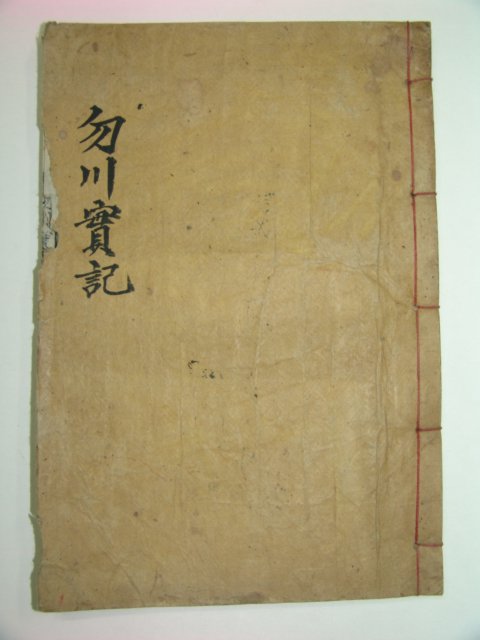 勿川實記